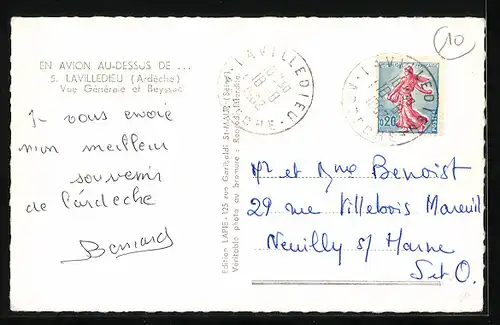 EN AVION AU-DESSUS DE ...
5. LAVILLEDIEU (Ardèche)
Vue Générale et Beyssac
Je vous envoie
mon meilleur
souvenir
de l'ardeche
Bernard
Edition LAPIE - 125 rue Garibaldi St-MAUR (Seine)
Véritable photo au bromure - Reproduction interdite
LAVILLEDIEU
ARDECHE
LAVILLEDIEU
ARDECHE
POSTES
0,20
10
Mr et Mme Benoist
29 rue Villebois Mareuil
Neuilly s/ Marne
S et O.